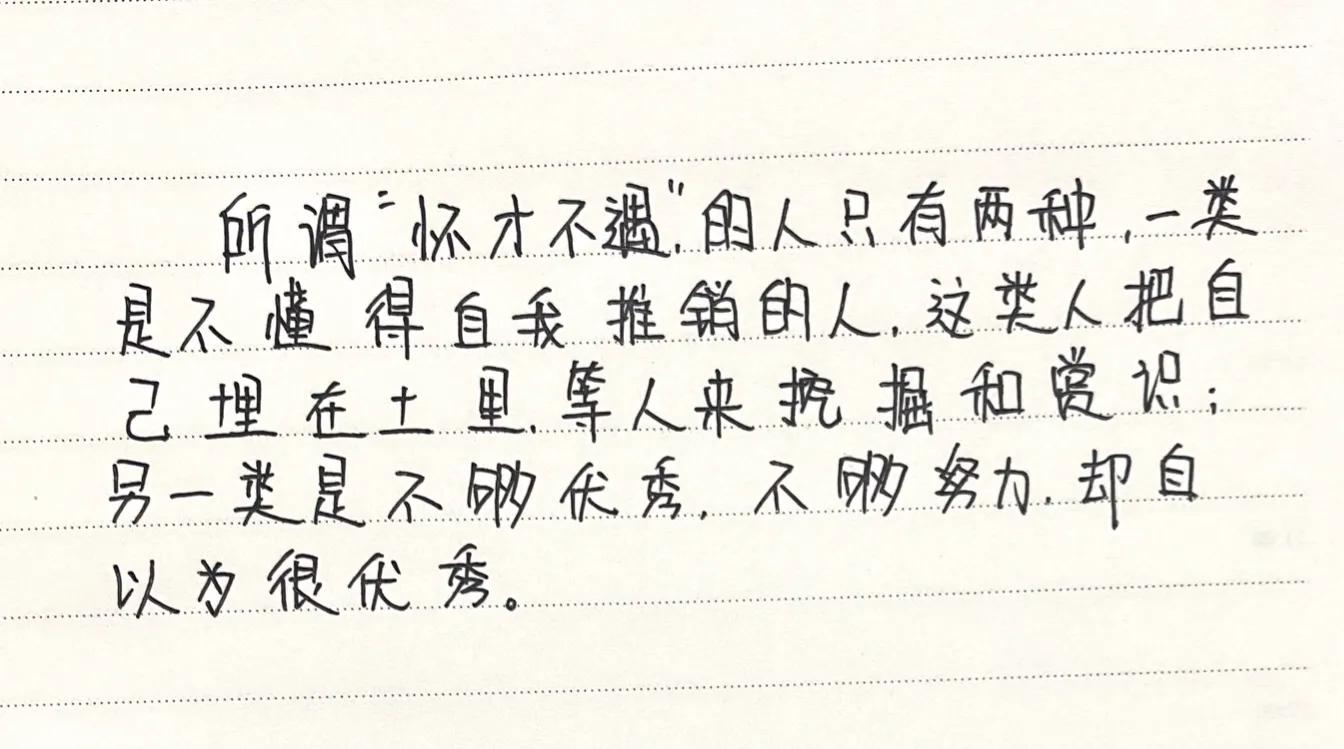 所谓“怀才不遇”的人只有两种，一类
是不懂得自我推销的人，这类人把自
己埋在土里，等人来挖掘和赏识；
另一类是不够优秀，不够努力，却自
以为很优秀。